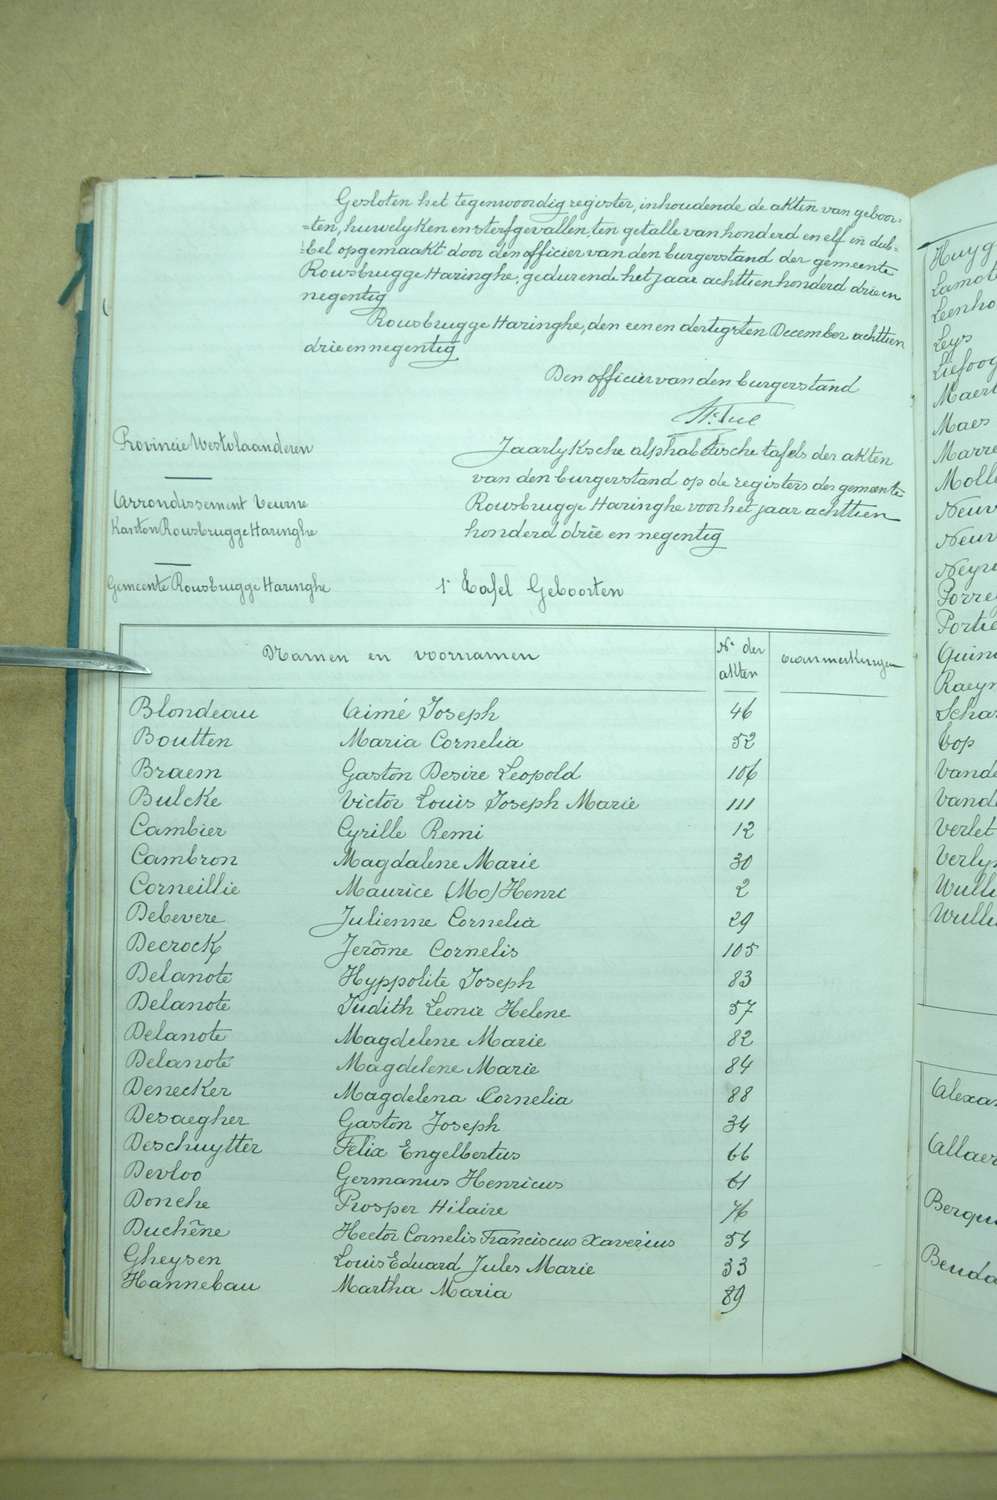 Gesloten het tegenwoordig register, inhoudende de akten van geboor=
=ten, huwelyken en sterfgevallen, ten getalle van honderd en elf en dub=
=bel opgemaakt door den officier van den burgerstand der gemeente
Rousbrugge Haringhe, gedurende het jaar achttien honderd drie en
negentig
Rousbrugge Haringhe, den een en dertigsten December achttien
drie en negentig
Den officier van den burgerstand
Provincie Westvlaanderen
Arrondissement Veurne
Kanton Rousbrugge Haringhe
Gemeente Rousbrugge Haringhe
Jaarlyksche alphabetische tafels der akten
van den burgerstand op de registers des gemeente
Rousbrugge Haringhe voor het jaar achttien
honderd drie en negentig
1e Tafel Geboorten
Namen en voornamen Nr der akten Aanmerkingen
Blondeau Aimé Joseph 46
Boutten Maria Cornelia 52
Braem Gaston Desire Leopold 106
Bulcke Victor Louis Joseph Marie 111
Cambier Cyrille Remi 12
Cambron Magdalene Marie 30
Corneillie Maurice (Mo) Henri 2
Debevere Julienne Cornelia 29
Decrock Jerôme Cornelis 105
Delanote Hyppolite Joseph 83
Delanote Judith Leonie Helene 57
Delanote Magdelene Marie 82
Delanote Magdelene Marie 84
Denecker Magdelena Cornelia 88
Desaegher Gaston Joseph 34
Deschuytter Felix Engelbertus 66
Devloo Germanus Henricus 61
Donche Prosper Hilaire 76
Duchêne Hector Cornelis Franciscus Xaverius 54
Gheysen Louis Eduard Jules Marie 33
Hannebau Martha Maria 89
Leys
Maes
Top